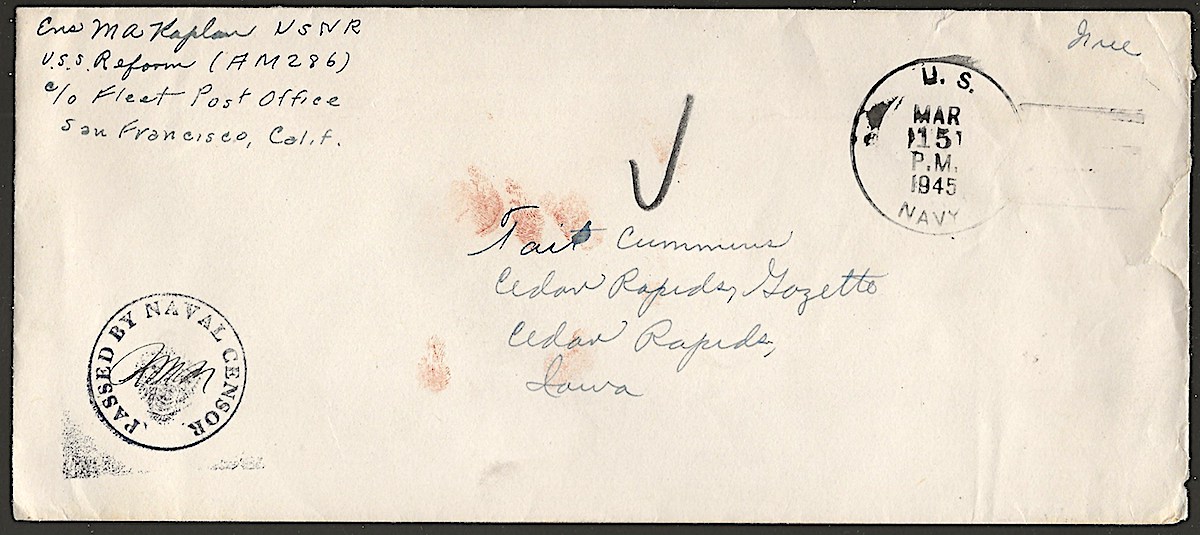 Ens M A Kaplan USNR
U.S.S. Reform (AM286)
c/o Fleet Post Office
San Francisco, Calif.
Free
U. S.
MAR
15
P.M.
1945
NAVY
Tait Cummins
Cedar Rapids, Gazette
Cedar Rapids,
Iowa
PASSED BY NAVAL CENSOR